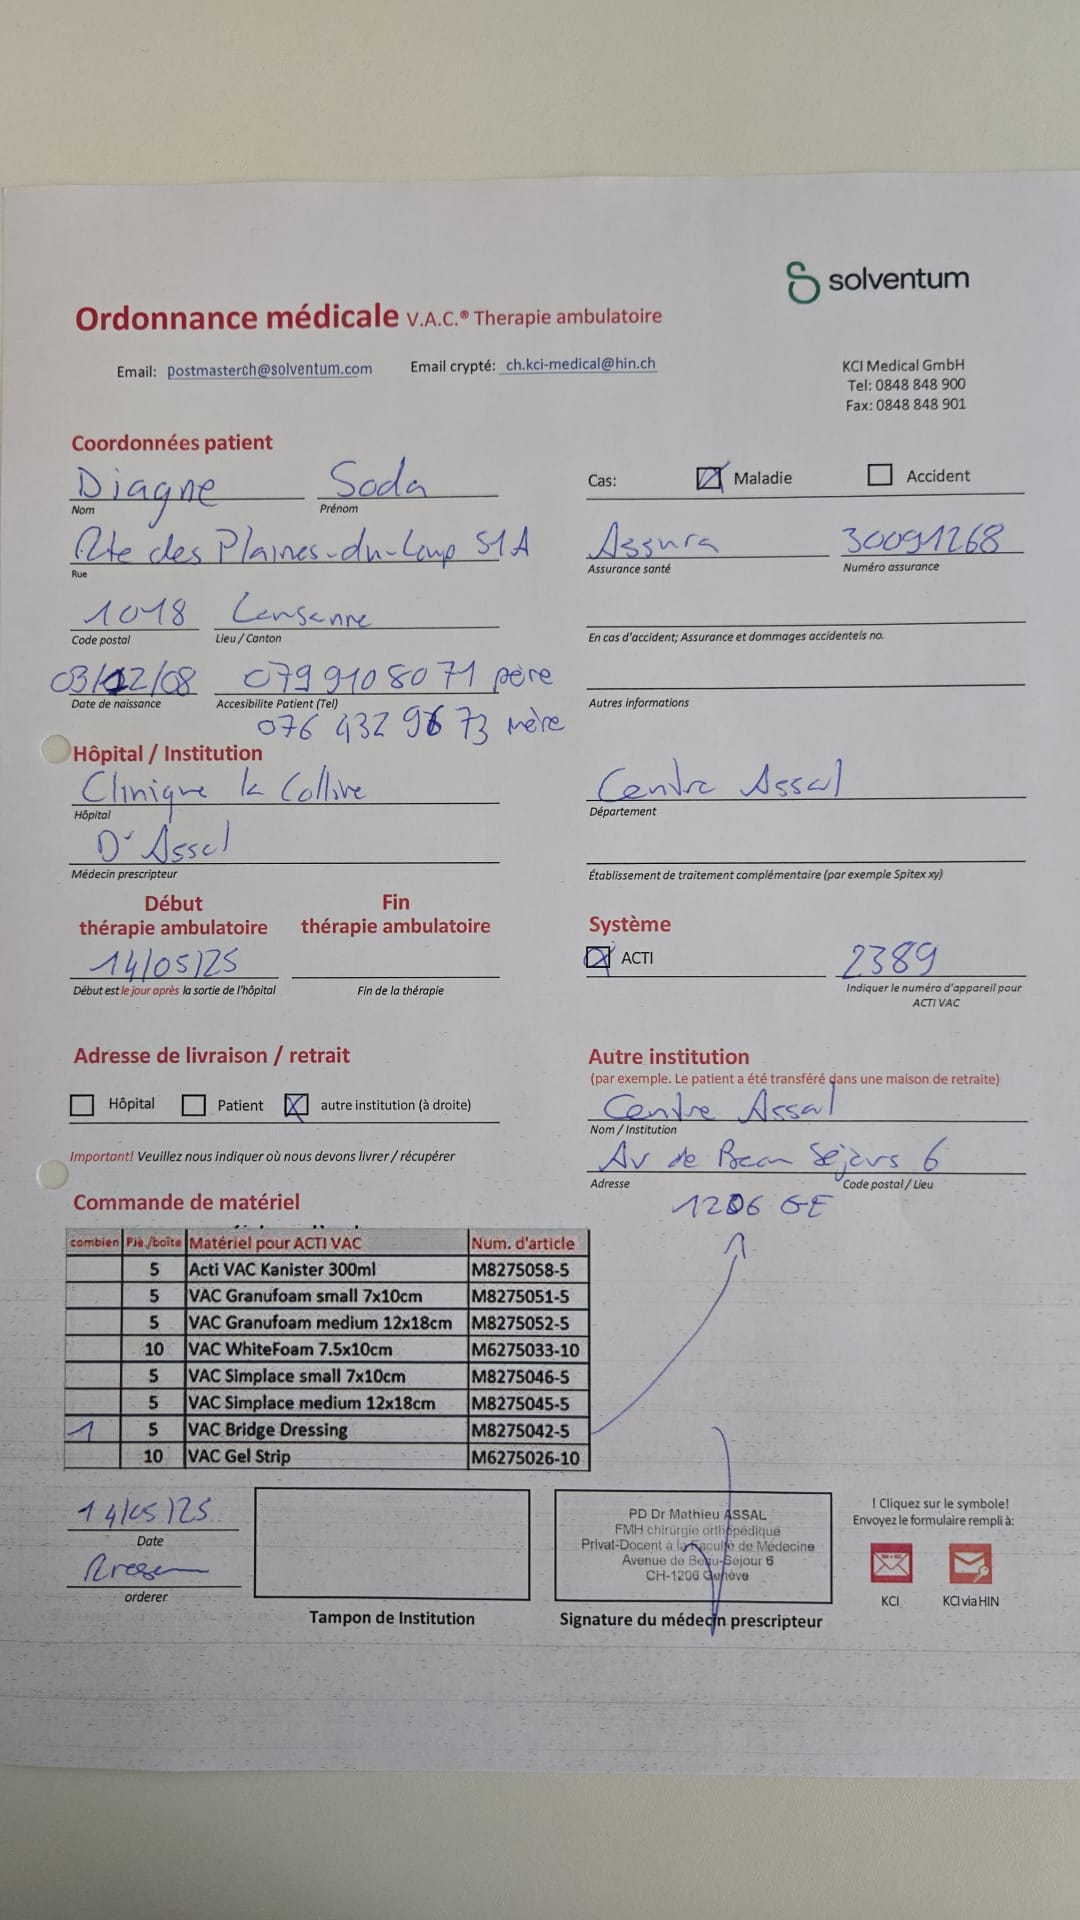 solventum
Ordonnance médicale V.A.C.® Therapie ambulatoire
Email: postmasterch@solventum.com Email crypté: ch.kci-medical@hin.ch
KCI Medical GmbH
Tel: 0848 848 900
Fax: 0848 848 901
Coordonnées patient
Diagne Soda
Nom Prénom
Cas: Maladie Accident
Rte des Plaines-du-Loup 51A
Rue
Assura 30091268
Assurance santé Numéro assurance
1018 Lausanne
Code postal Lieu / Canton
En cas d'accident; Assurance et dommages accidentels no.
03/12/08 079 910 80 71 père
Date de naissance Accesibilite Patient (Tel)
076 432 96 73 mère
Autres informations
Hôpital / Institution
Clinique la Colline
Hôpital
Centre Assal
Département
Dr Assal
Médecin prescripteur
Établissement de traitement complémentaire (par exemple Spitex xy)
Début thérapie ambulatoire
Fin thérapie ambulatoire
14/05/25
Début est le jour après la sortie de l'hôpital
Fin de la thérapie
Système
ACTI 2389
Indiquer le numéro d'appareil pour
ACTI VAC
Adresse de livraison / retrait
Hôpital Patient autre institution (à droite)
Important! Veuillez nous indiquer où nous devons livrer / récupérer
Autre institution
(par exemple. Le patient a été transféré dans une maison de retraite)
Centre Assal
Nom / Institution
Av de Beau Séjours 6
Adresse Code postal / Lieu
1206 GE
Commande de matériel
combien Piè./boîte Matériel pour ACTI VAC Num. d'article
5 Acti VAC Kanister 300ml M8275058-5
5 VAC Granufoam small 7x10cm M8275051-5
5 VAC Granufoam medium 12x18cm M8275052-5
10 VAC WhiteFoam 7.5x10cm M6275033-10
5 VAC Simplace small 7x10cm M8275046-5
5 VAC Simplace medium 12x18cm M8275045-5
1 5 VAC Bridge Dressing M8275042-5
10 VAC Gel Strip M6275026-10
14/05/25
Date
orderer
Tampon de Institution
PD Dr Mathieu ASSAL
FMH chirurgie orthopédique
Privat-Docent à la Faculté de Médecine
Avenue de Beau-Séjour 6
CH-1206 Genève
Signature du médecin prescripteur
! Cliquez sur le symbole!
Envoyez le formulaire rempli à:
KCI KCI via HIN